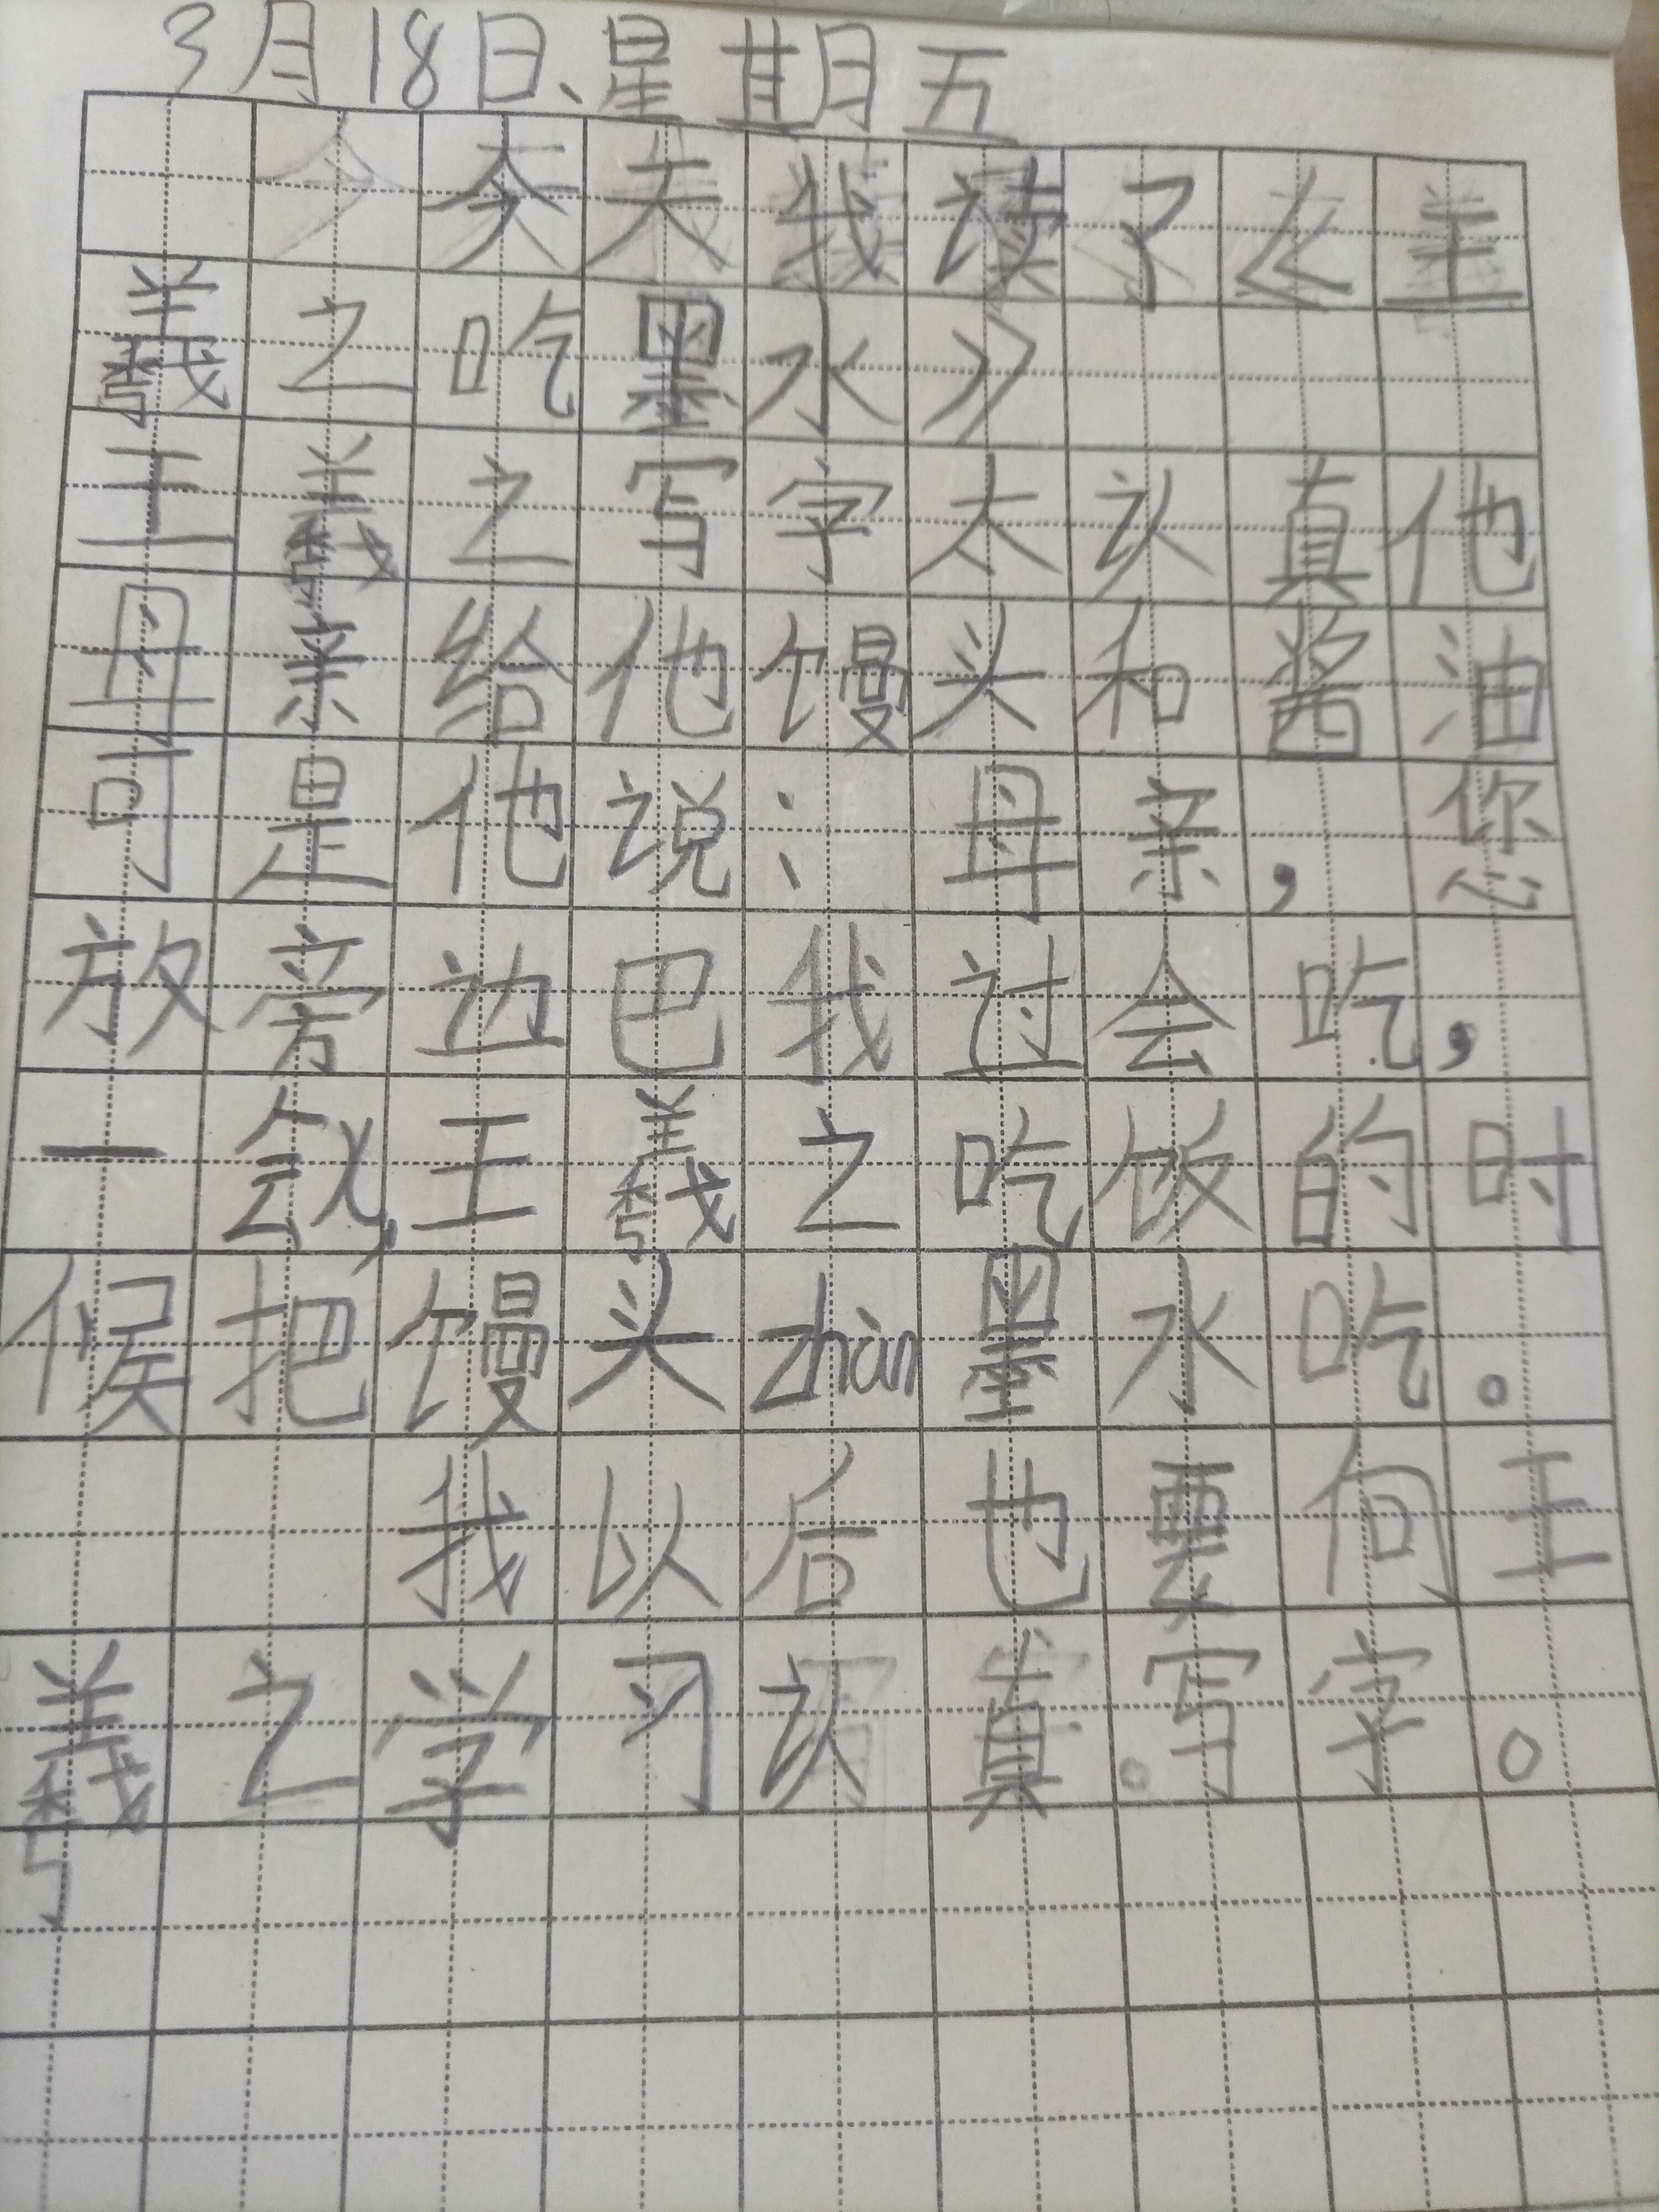 3月18日、星期五
今天我读了《王
羲之吃墨水》
王羲之写字太认真他
母亲给他馒头和酱油
可是他说：母亲，您
放旁边巴我过会吃，
一会儿，王羲之吃饭的时
候把馒头zhàn墨水吃。
我以后也要向王
羲之学习认真写字。